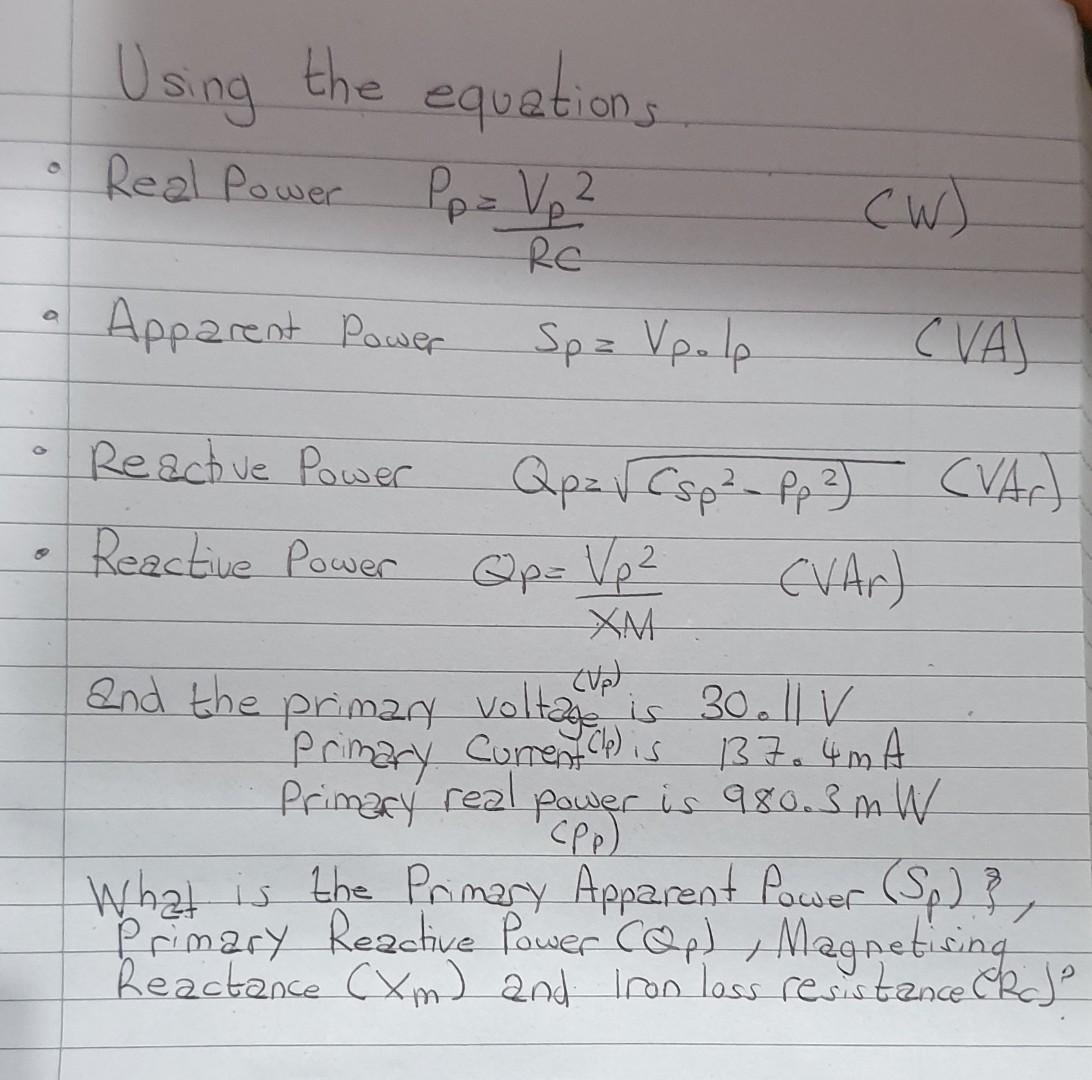 Using the equations.
• Real Power Pp = Vp² / RC (W)
• Apparent Power Sp = Vp.Ip (VA)
• Reactive Power Qp = √(Sp² - Pp²) (VAr)
• Reactive Power Qp = Vp² / XM (VAr)
and the primary voltage (Vp) is 30.11 V
Primary Current (Ip) is 137.4mA
Primary real power is 980.3mW
(Pp)
What is the Primary Apparent Power (Sp)?,
Primary Reactive Power (Qp), Magnetising
Reactance (Xm) and Iron loss resistance (Rc)?